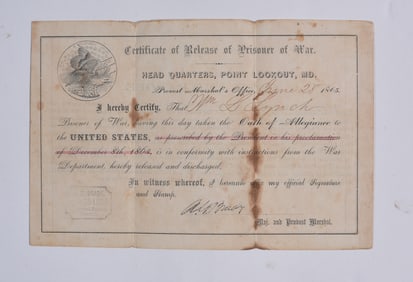 Certificate of Release of Prisoner of War.
HEAD QUARTERS, POINT LOOKOUT, MD.
Provost Marshal's Office, June 28 1865.
I hereby Certify, That Wm
Prisoner of War, having this day taken the Oath of Allegiance to
the UNITED STATES, as prescribed by the President in his proclamation
of December 8th, 1863, is in conformity with instructions from the War
Department, hereby released and discharged.
In witness whereof, I hereunto my official Signature
and Stamp.
Maj. and Provost Marshal.